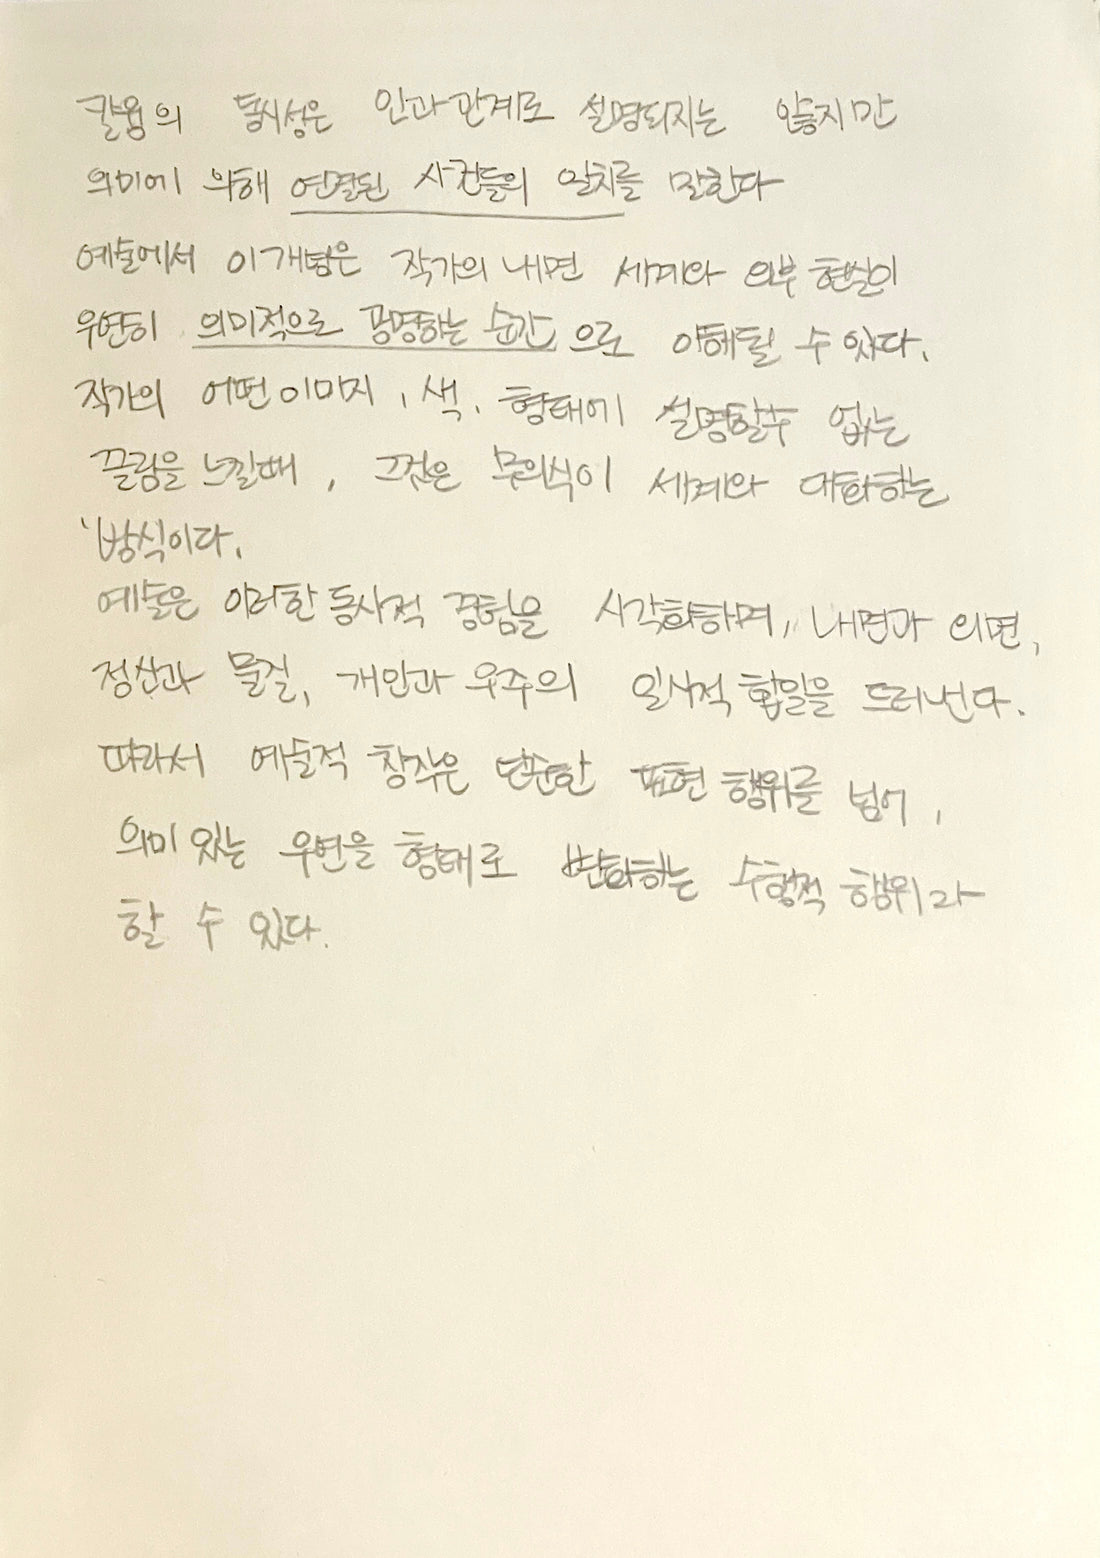 칼융의 동시성은 인과관계로 설명되지는 않지만
의미에 의해 연결된 사건들의 일치를 말한다
예술에서 이개념은 작가의 내면 세계와 외부 현실이
우연히 의미적으로 공명하는 순간으로 이해될 수 있다.
작가의 어떤이미지, 색, 형태에 설명할수 없는
끌림을 느낄때, 그것은 무의식이 세계와 대화하는
방식이다.
예술은 이러한 동시적 경험을 시각화하며, 내면과 외면,
정신과 물질, 개인과 우주의 일시적 합일을 드러낸다.
따라서 예술적 창작은 단순한 표현 행위를 넘어,
의미 있는 우연을 형태로 변화하는 수행적 행위라
할 수 있다.